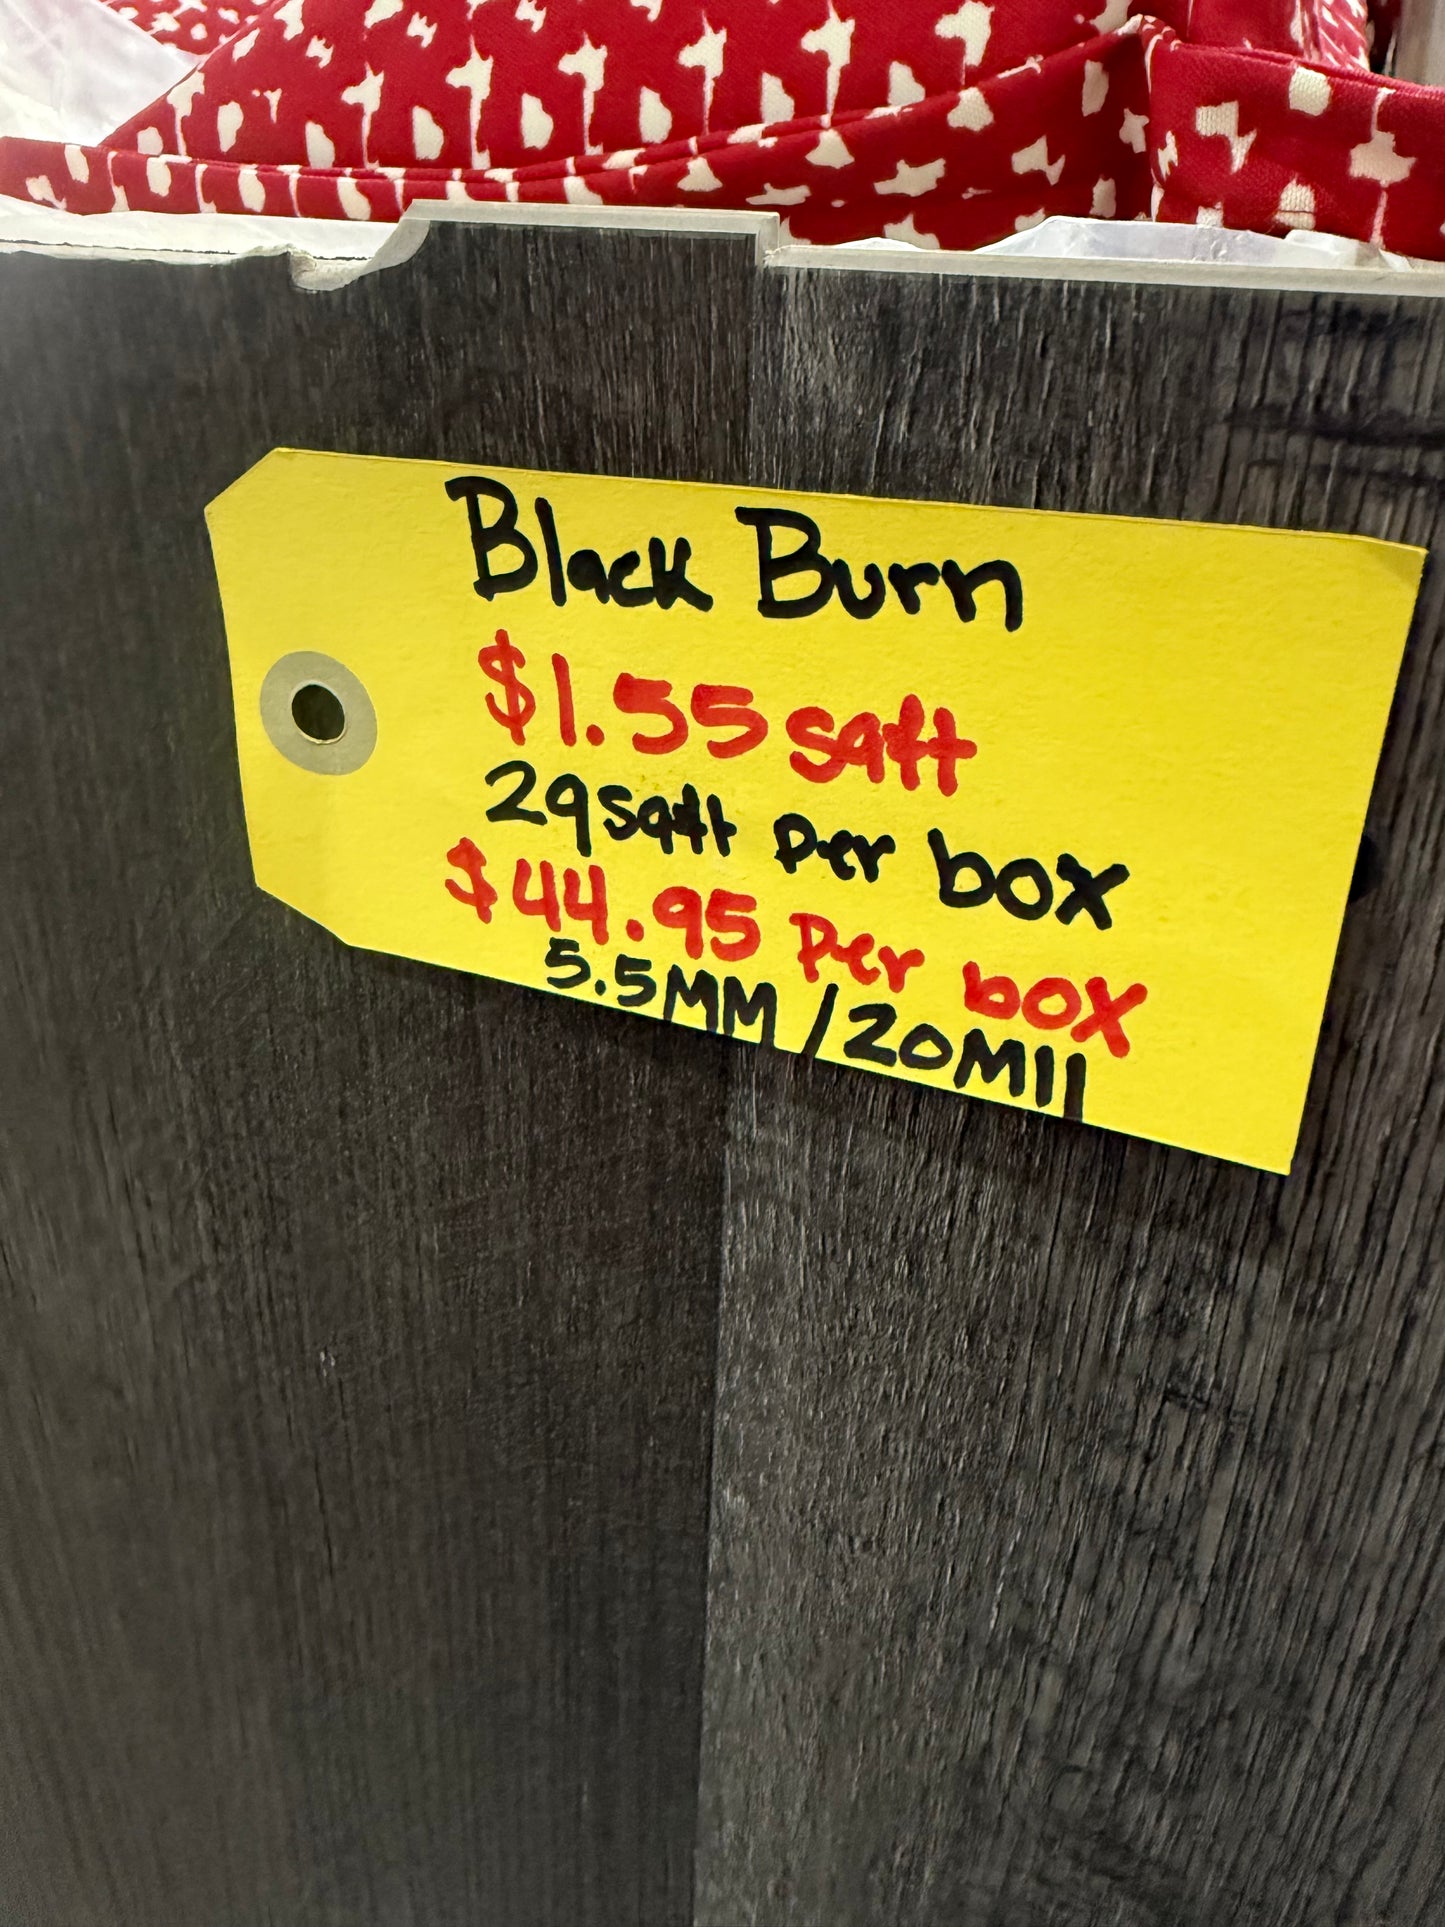 Black Burn
$1.55 sqft
29sqft per box
$44.95 per box
5.5MM/20Mil